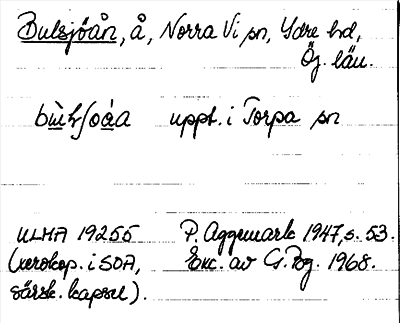 Bulsjöån, å, Norra Vi sn, Ydre hd,
Ög. län.
uppt. i Torpa sn
ULMA 19255 P. Aggemark 1947, s. 53.
(xerokop. i SOA, Exc. av G. Rog. 1968.
särsk. kapsel).